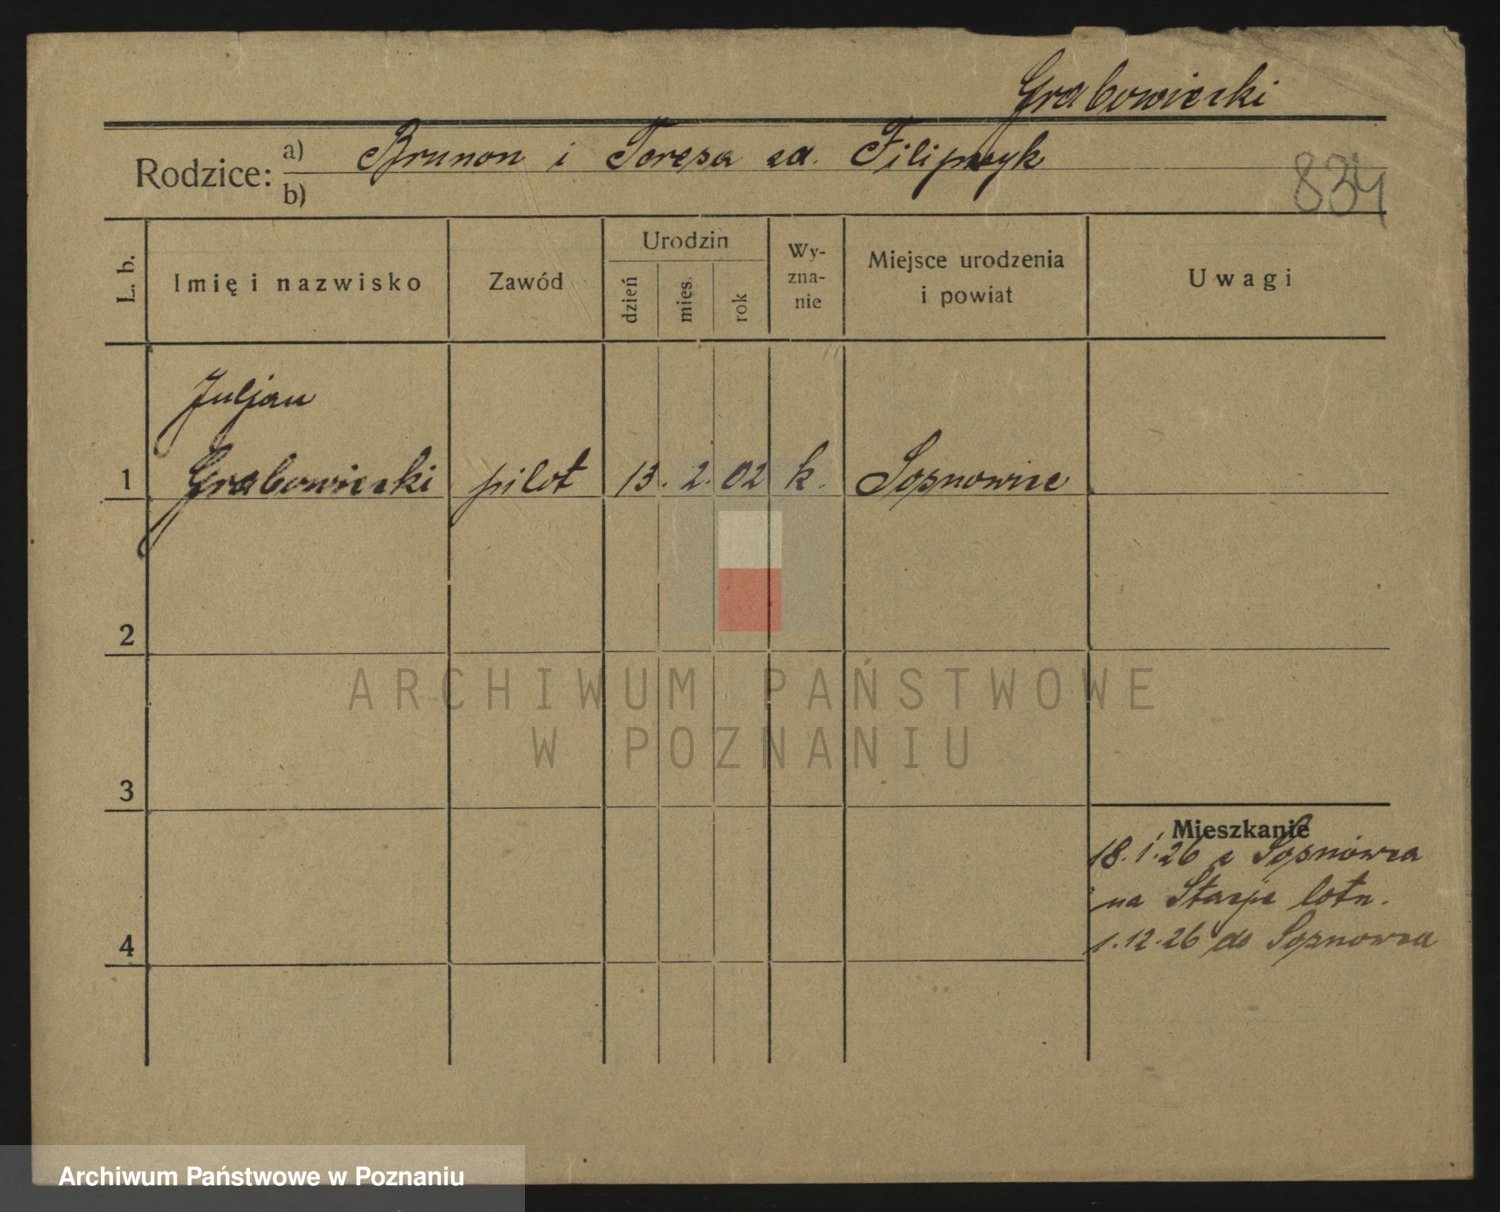 Grabowiecki
Rodzice: a) Brunon i Teresa zd. Filipczyk
b)
834
L. b.
Imię i nazwisko
Zawód
Urodzin
dzień
mies.
rok
Wy-
zna-
nie
Miejsce urodzenia
i powiat
Uwagi
Juljan
1 Grabowiecki pilot 13. 2. 02 k. Sosnowice
2
ARCHIWUM PAŃSTWOWE
W POZNANIU
3
Mieszkanie
18.1.26 z Sosnowca
na Stacje lotn.
4
1.12.26 do Sosnowca
Archiwum Państwowe w Poznaniu